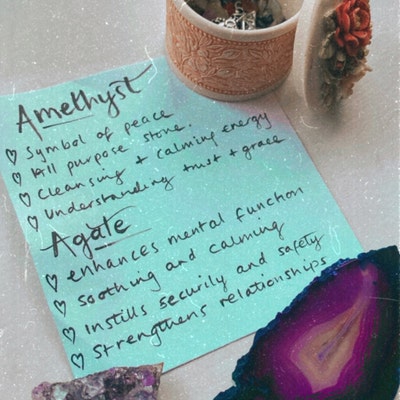 Amethyst
♡ Symbol of peace
♡ All purpose stone.
♡ Cleansing + calming energy
♡ Understanding trust + grace
Agate
♡ enhances mental function
♡ Soothing and calming
♡ Instills Security and safety
♡ Strengthens relationships